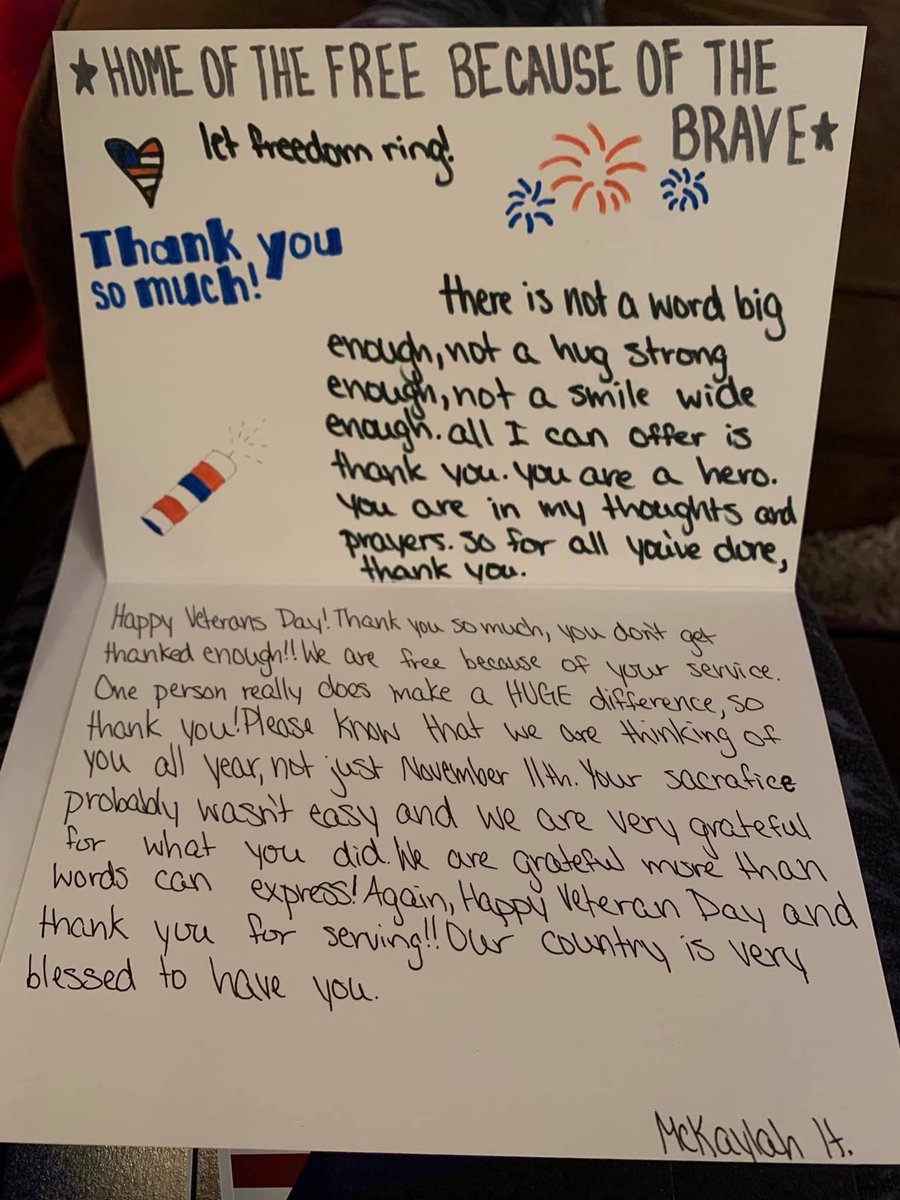 ★HOME OF THE FREE BECAUSE OF THE
BRAVE★
let freedom ring!
Thank you
so much!
there is not a word big
enough, not a hug strong
enough, not a smile wide
enough. all I can offer is
thank you. you are a hero.
you are in my thoughts and
prayers. so for all you've done,
thank you.
Happy Veterans Day! Thank you so much, you don't get
thanked enough!! We are free because of your service.
One person really does make a HUGE difference, so
thank you! Please know that we are thinking of
you all year, not just November 11th. Your sacrafice
probably wasn't easy and we are very grateful
for what you did. We are grateful more than
words can express! Again, Happy Veteran Day and
thank you for serving!! Our country is very
blessed to have you.
McKaylah H.